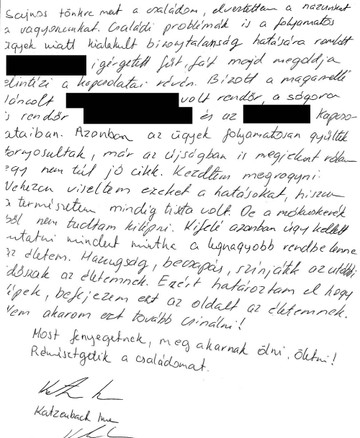 Sajnos tönkre ment a családom, elvesztettem a házunkat
a vagyonunkat. Családi problémák és a folyamatos
ügyek miatt kialakult bizonytalanság hatására
ígérgetett fűt, fát majd megoldja
elintézi a kapcsolatai révén. Bízott a maga mellé
láncolt volt rendőr, a sógora
is rendőr és az kapcso-
lataiban. Azonban az ügyek folyamatosan gyűltek
tornyosultak, már az újságban is megjelent rólam
egy nem túl jó cikk. Kezdtem megrogyni
Nehezen viseltem ezeket a hatásokat, hiszen
a természetem mindig tiszta volt. De a mókuskerék
ből nem tudtam kilépni. Kifelé azonban úgy kellett
mutatni mindent mintha a legnagyobb rendbe lenne
az életem. Hazugság, becsapás, színjáték az utóbbi
időszak az életemnek. Ezért határoztam el hogy
lépek, befejezem ezt az oldalt az életemnek.
Nem akarom ezt tovább csinálni!
Most fenyegetnek, meg akarnak ölni, öletni!
Rémisztgetik a családomat.
Katzenbach Imre